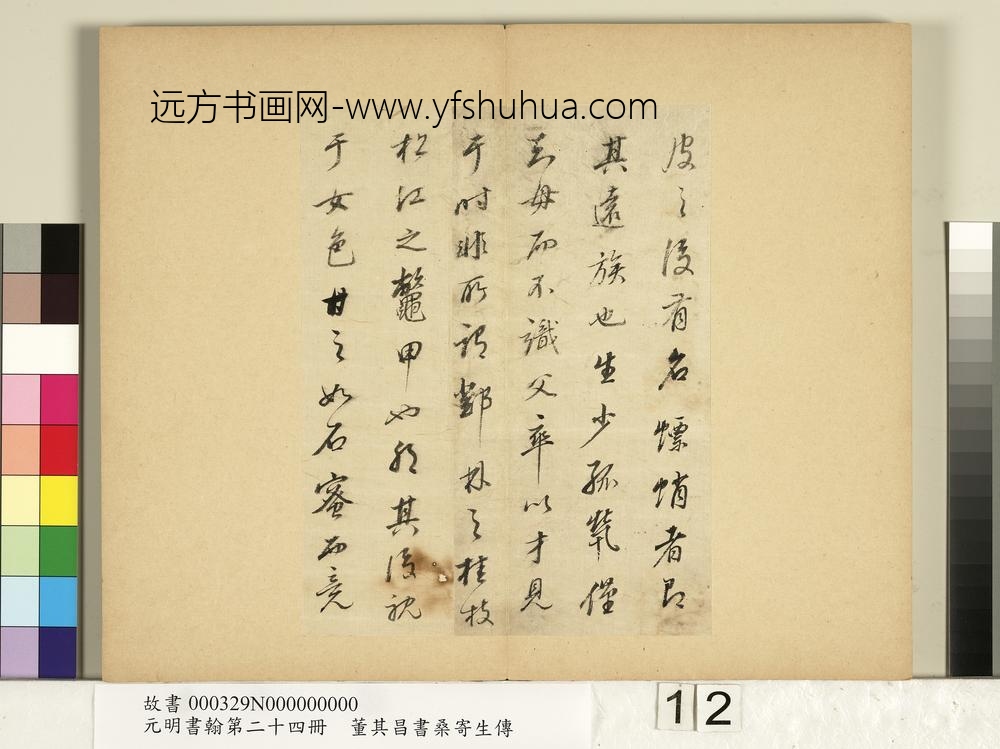 远方书画网-www.yfshuhua.com
皮之後有名螵蛸者即
其遠族也生少孤煢僅
知母而不識父卒以才見
于時非所謂鄧林之桂枝
松江之鼈甲也耶其後耽
于女色甘之如石蜜而竟
故書 000329N000000000
元明書翰第二十四冊 董其昌書桑寄生傳
12